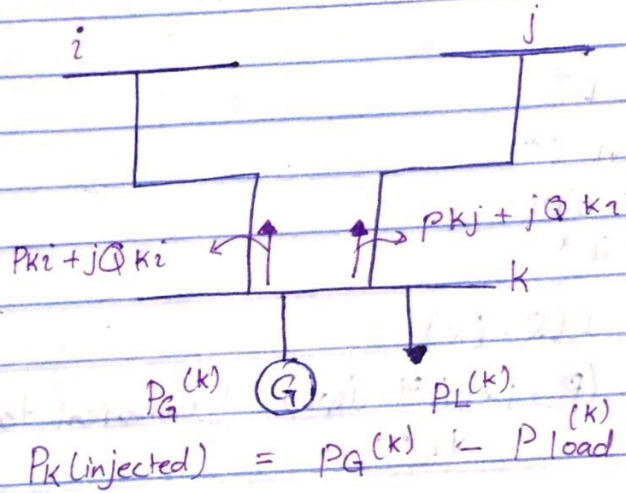 i
j
Pki + jQki
Pkj + jQki
k
PG(k)
G
PL(k)
Pk(injected) = PG(k) - Pload(k)